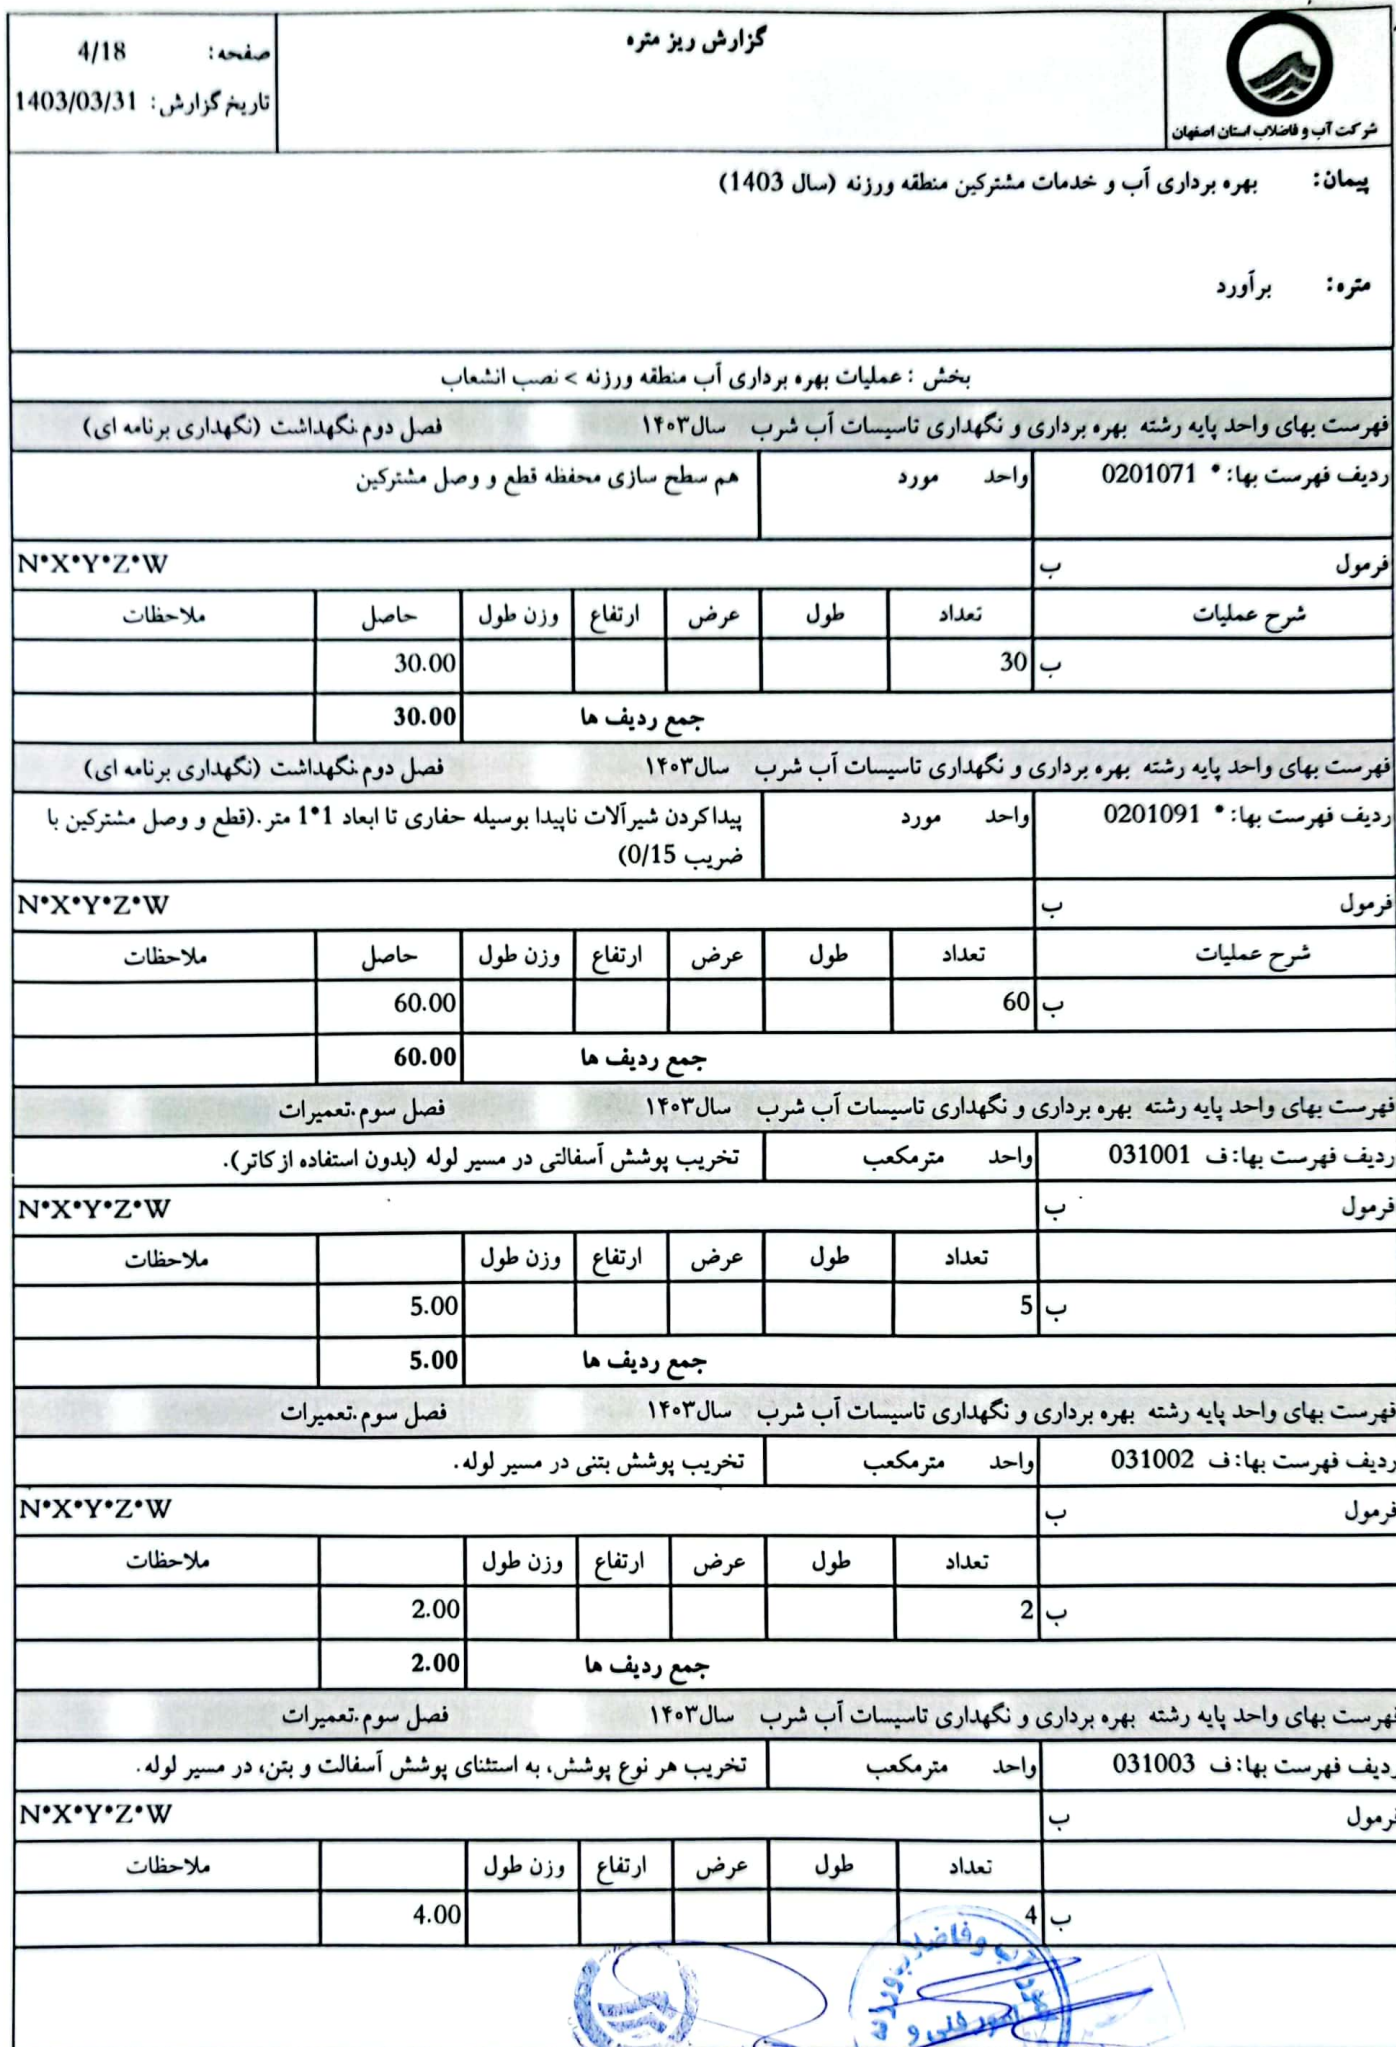 شرکت آب و فاضلاب استان اصفهان
گزارش ریز متره
صفحه: 4/18
تاریخ گزارش: 1403/03/31
پیمان: بهره برداری آب و خدمات مشترکین منطقه ورزنه (سال 1403)
متره: برآورد
بخش : عملیات بهره برداری آب منطقه ورزنه > نصب انشعاب
فهرست بهای واحد پایه رشته بهره برداری و نگهداری تاسیسات آب شرب سال۱۴۰۳ فصل دوم.نگهداشت (نگهداری برنامه ای)
ردیف فهرست بها: * 0201071 واحد مورد هم سطح سازی محفظه قطع و وصل مشترکین
فرمول ب N*X*Y*Z*W
شرح عملیات تعداد طول عرض ارتفاع وزن طول حاصل ملاحظات
ب 30 30.00
جمع ردیف ها 30.00
فهرست بهای واحد پایه رشته بهره برداری و نگهداری تاسیسات آب شرب سال۱۴۰۳ فصل دوم.نگهداشت (نگهداری برنامه ای)
ردیف فهرست بها: * 0201091 واحد مورد پیداکردن شیرآلات ناپیدا بوسیله حفاری تا ابعاد 1*1 متر.(قطع و وصل مشترکین با
ضریب 0/15)
فرمول ب N*X*Y*Z*W
شرح عملیات تعداد طول عرض ارتفاع وزن طول حاصل ملاحظات
ب 60 60.00
جمع ردیف ها 60.00
فهرست بهای واحد پایه رشته بهره برداری و نگهداری تاسیسات آب شرب سال۱۴۰۳ فصل سوم.تعمیرات
ردیف فهرست بها: ف 031001 واحد مترمکعب تخریب پوشش آسفالتی در مسیر لوله (بدون استفاده ازکاتر).
فرمول ب N*X*Y*Z*W
تعداد طول عرض ارتفاع وزن طول ملاحظات
ب 5 5.00
جمع ردیف ها 5.00
فهرست بهای واحد پایه رشته بهره برداری و نگهداری تاسیسات آب شرب سال۱۴۰۳ فصل سوم.تعمیرات
ردیف فهرست بها: ف 031002 واحد مترمکعب تخریب پوشش بتنی در مسیر لوله.
فرمول ب N*X*Y*Z*W
تعداد طول عرض ارتفاع وزن طول ملاحظات
ب 2 2.00
جمع ردیف ها 2.00
فهرست بهای واحد پایه رشته بهره برداری و نگهداری تاسیسات آب شرب سال۱۴۰۳ فصل سوم.تعمیرات
ردیف فهرست بها: ف 031003 واحد مترمکعب تخریب هر نوع پوشش، به استثنای پوشش آسفالت و بتن، در مسیر لوله.
فرمول ب N*X*Y*Z*W
تعداد طول عرض ارتفاع وزن طول ملاحظات
ب 4 4.00
آب وفاضلاب ورزنه
امور فنی و